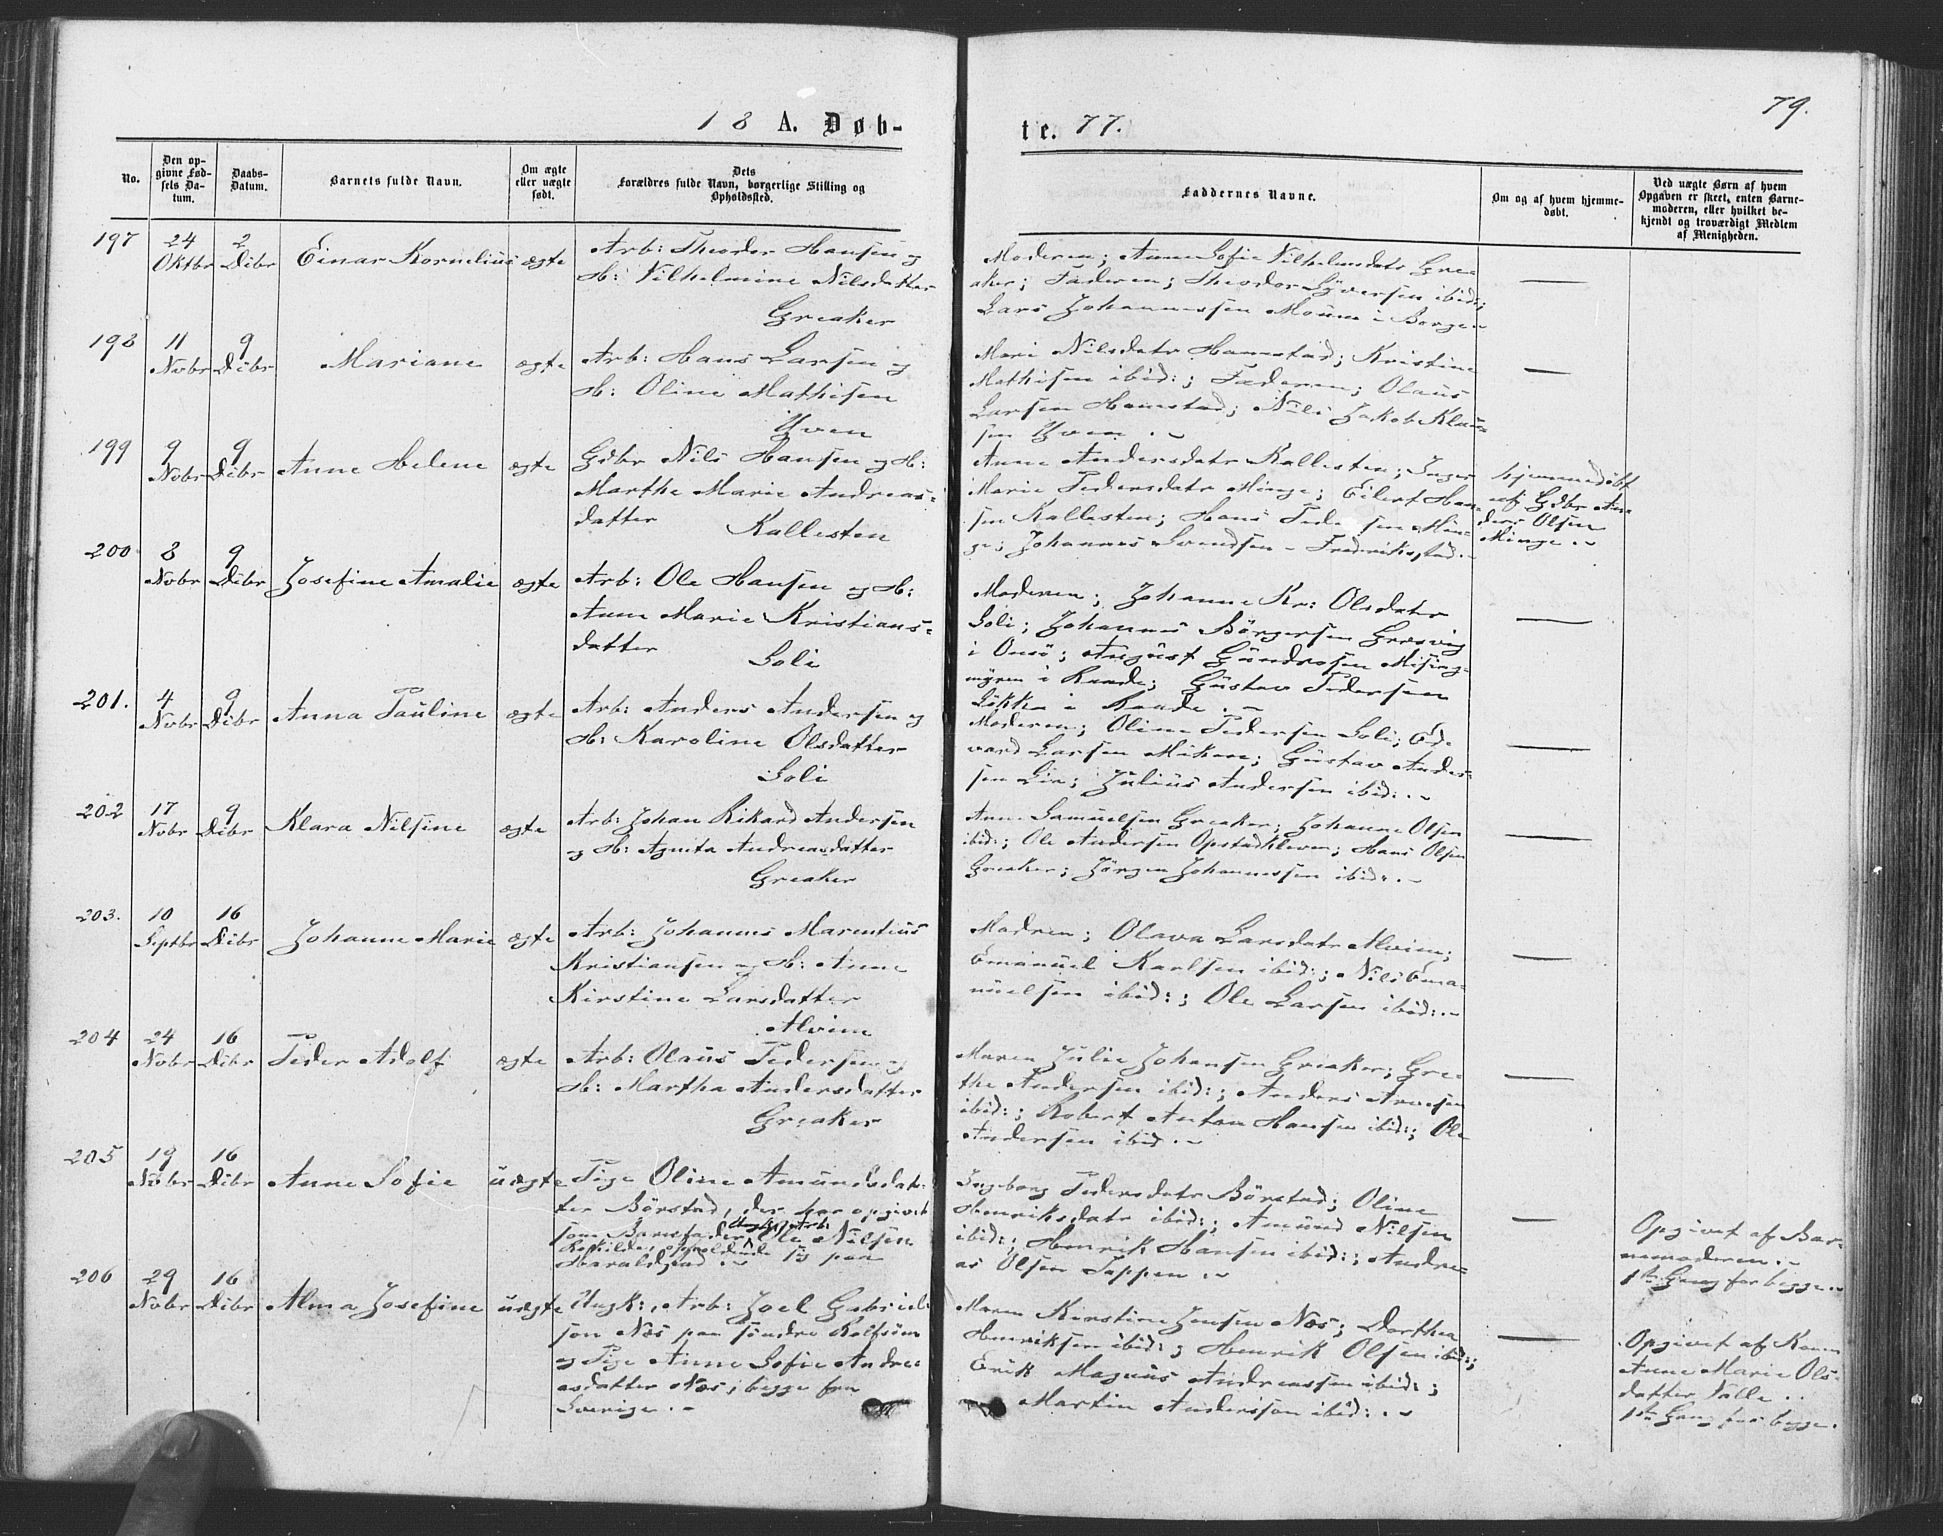 18 A. Døb-
te. 77.
79.
No.
Den op-
givne Fød-
sels Da-
tum.
Daabs-
Datum.
Barnets fulde Navn.
Om ægte
eller uægte
født.
Dets
Forældres fulde Navn, borgerlige Stilling og
Opholdssted.
Faddernes Navne.
Om og af hvem hjemme-
døbt.
Ved uægte Børn af hvem
Opgaven er skeet, enten Barne-
moderen, eller hvilket be-
kjendt og troværdigt Medlem
af Menigheden.
197
24
Oktbr
2
Dcbr
Einar Kornelius
ægte
Arb: Theodor Hansen og
H: Vilhelmine Nilsdatter
Greaker
Moderen; Anne Sofie Vilhelmsdatr Grea-
ker; Faderen; Theodor Syversen ibid:;
Lars Johannessen Moum i Borge.-
—
198
11
Nvbr
9
Dcbr
Mariane
ægte
Arb: Hans Larsen og
H: Oline Mathisen
Yven
Mari Nilsdatr Hannestad; Kristine
Mathisen ibid:; Faderen; Olaus
Larsen Hannestad; Nils Jakob Klau-
sen Yven.-
—
199
9
Nvbr
9
Dcbr
Anne Helene
ægte
Gdbr Nils Hansen og H:
Marthe Marie Andreas-
datter
Kallesten
Anne Andersdatr Kallesten; Inger
Marie Pedersdatr Minge; Eilert Han-
sen Kallesten; Hans Pedersen Min-
ge; Johannes Svendsen - Fredriksstad.-
hjemmedøbt
af Gdbr An-
ders Olsen
Minge.-
200
8
Nvbr
9
Dcbr
Josefine Amalie
ægte
Arb: Ole Hansen og H:
Anne Marie Kristians-
datter
Soli
Moderen; Johanne Kr: Olsdatr
Soli; Johannes Börgersen Gresvig
i Onsö; August Gundersen Mising-
myren i Raade; Gustav Pedersen
Løkke i Raade.-
—
201.
4
Nvbr
9
Dcbr
Anna Pauline
ægte
Arb: Anders Andersen og
H: Karoline Olsdatter
Soli
Moderen; Oline Pedersen Soli; Ed-
vard Larsen Miken; Gustav Ander-
sen Lie; Julius Andersen ibid:.-
—
202
17
Nvbr
9
Dcbr
Klara Nilsine
ægte
Arb: Johan Rikard Andersen
og H: Agneta Andreasdatter
Greaker
Anne Samuelsen Greaker; Johanne Olsen
ibid:; Ole Andersen Opstadkleven; Hans Olsen
Greaker; Jörgen Johannessen ibid:.-
—
203.
10
Septbr
16
Dcbr
Johanne Marie
ægte
Arb: Johannes Marentius
Kristiansen og H: Anne
Kirstine Larsdatter
Alvim
Modren; Olava Larsdatr Alvim;
Emanuel Karlsen ibid:; Nils Ema-
nuelsen ibid:; Ole Larsen ibid:.-
—
204
24
Nvbr
16
Dcbr
Peder Adolf
ægte
Arb: Olaus Pedersen og
H: Martha Andersdatter
Greaker
Maren Julie Johansen Greaker; Gre-
the Andersen ibid:; Anders Arvesen
ibid:; Robert Anton Hansen ibid:; Ole
Andersen ibid.-
—
205
19
Nvbr
16
Dcbr
Anne Sofie
uægte
Pige Oline Amundsdat-
ter Börstad, der har opgivet
Ungk: Arb:
som Barnefader Ole Nilsen
Roskilde, opholdende sig paa
Haraldstad.-
Ingeborg Pedersdatr Börstad; Oline
Henriksdatr ibid:; Amund Nilsen
ibid:; Henrik Hansen ibid:; Andre-
as Olsen Tappen.-
—
Opgivet af Bar-
nemoderen.-
1ste Gang for begge.-
206
29
Nvbr
16
Dcbr
Alma Josefine
uægte
Ungk:, Arb: Joel Gabriel-
son Næs paa söndre Rolfsöen
og Pige Anne Sofie Andre-
asdatter Næs; begge fra
Sverige.-
Maren Kirstine Jensen Næs; Dorthea
Henriksen ibid:; Henrik Olsen ibid:;
Erik Magnus Andreassen ibid:;
Martin Andersson ibid:.-
—
Opgivet af Konen
Anne Marie Ols-
datter Valle.-
1ste Gang for begge.